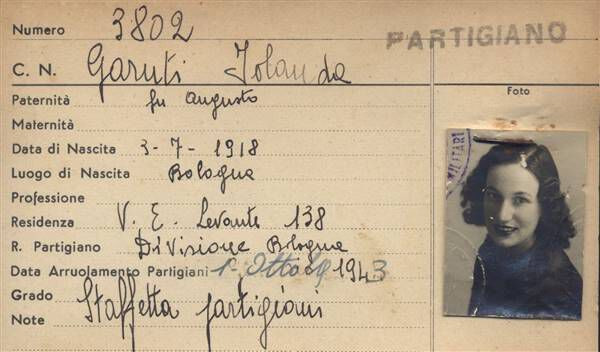 Numero 3802
PARTIGIANO
C. N. Garuti Jolanda
Foto
Paternità fu Augusto
Maternità
Data di Nascita 3-7-1918
Luogo di Nascita Bologna
Professione
Residenza V. E. Levante 138
R. Partigiano Divisione Bologna
Data Arruolamento Partigiani 1° 1943
Grado Staffetta partigiana
Note
MILITARI